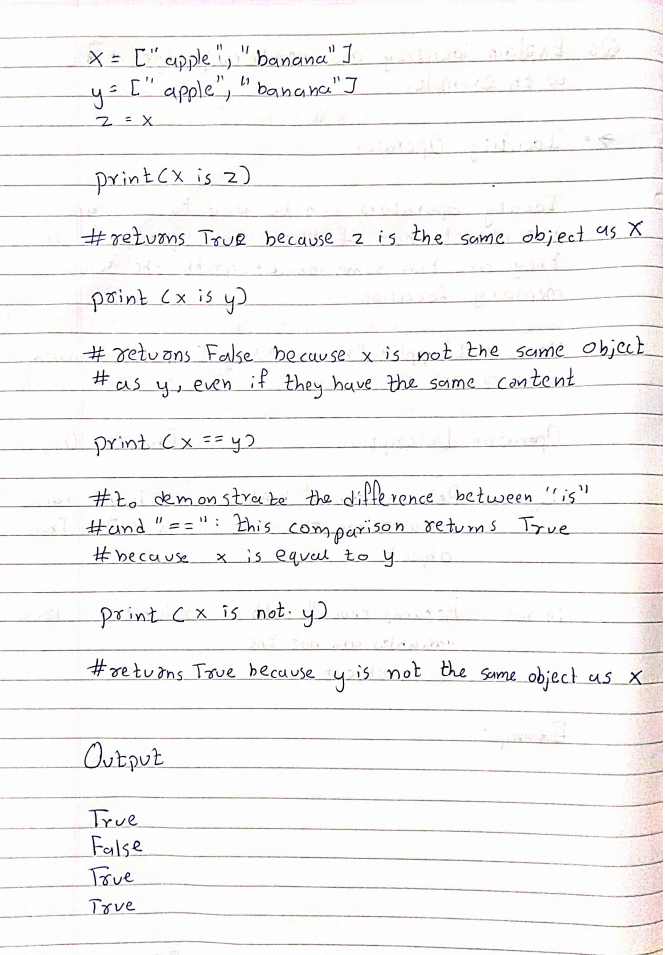 x = ["apple", "banana"]
y = ["apple", "banana"]
z = x
print(x is z)
# returns True because z is the same object as x
print (x is y)
# returns False because x is not the same object
# as y, even if they have the same content
print (x == y)
# to demonstrate the difference between "is"
# and "==" : this comparison returns True
# because x is equal to y
print (x is not y)
# returns True because y is not the same object as x
Output
True
False
True
True